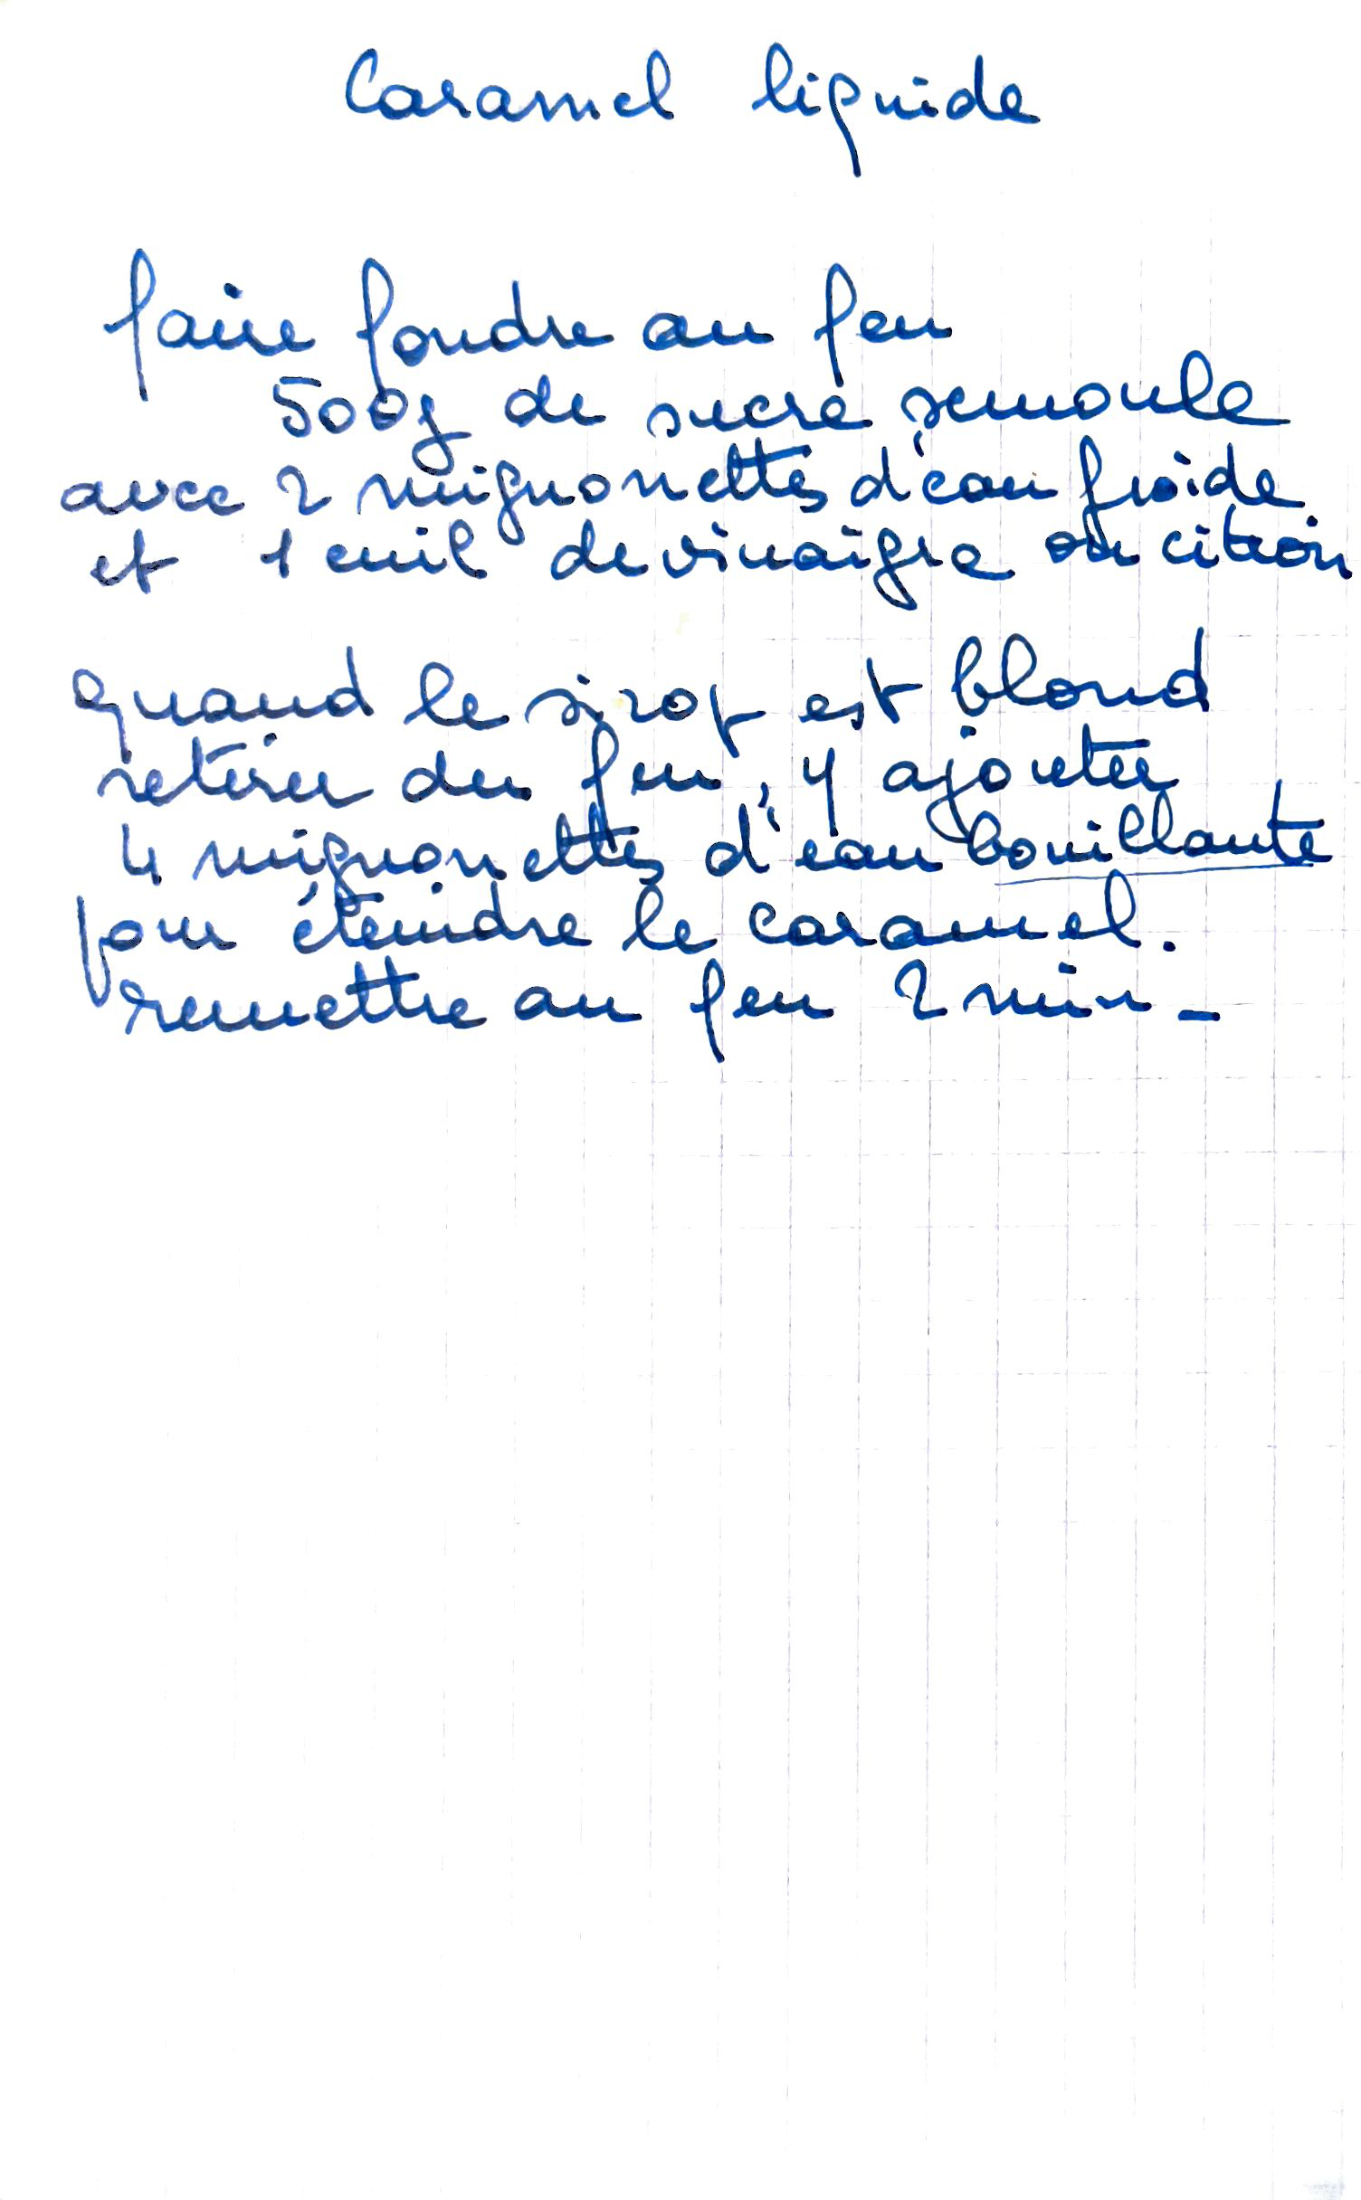 Caramel liquide
faire fondre au feu
500g de sucre semoule
avec 2 mignonettes d'eau froide
et 1 cuil de vinaigre ou citron
quand le sirop est blond
retirer du feu, y ajouter
4 mignonettes d'eau bouillante
pour éteindre le caramel.
remettre au feu 2 min -